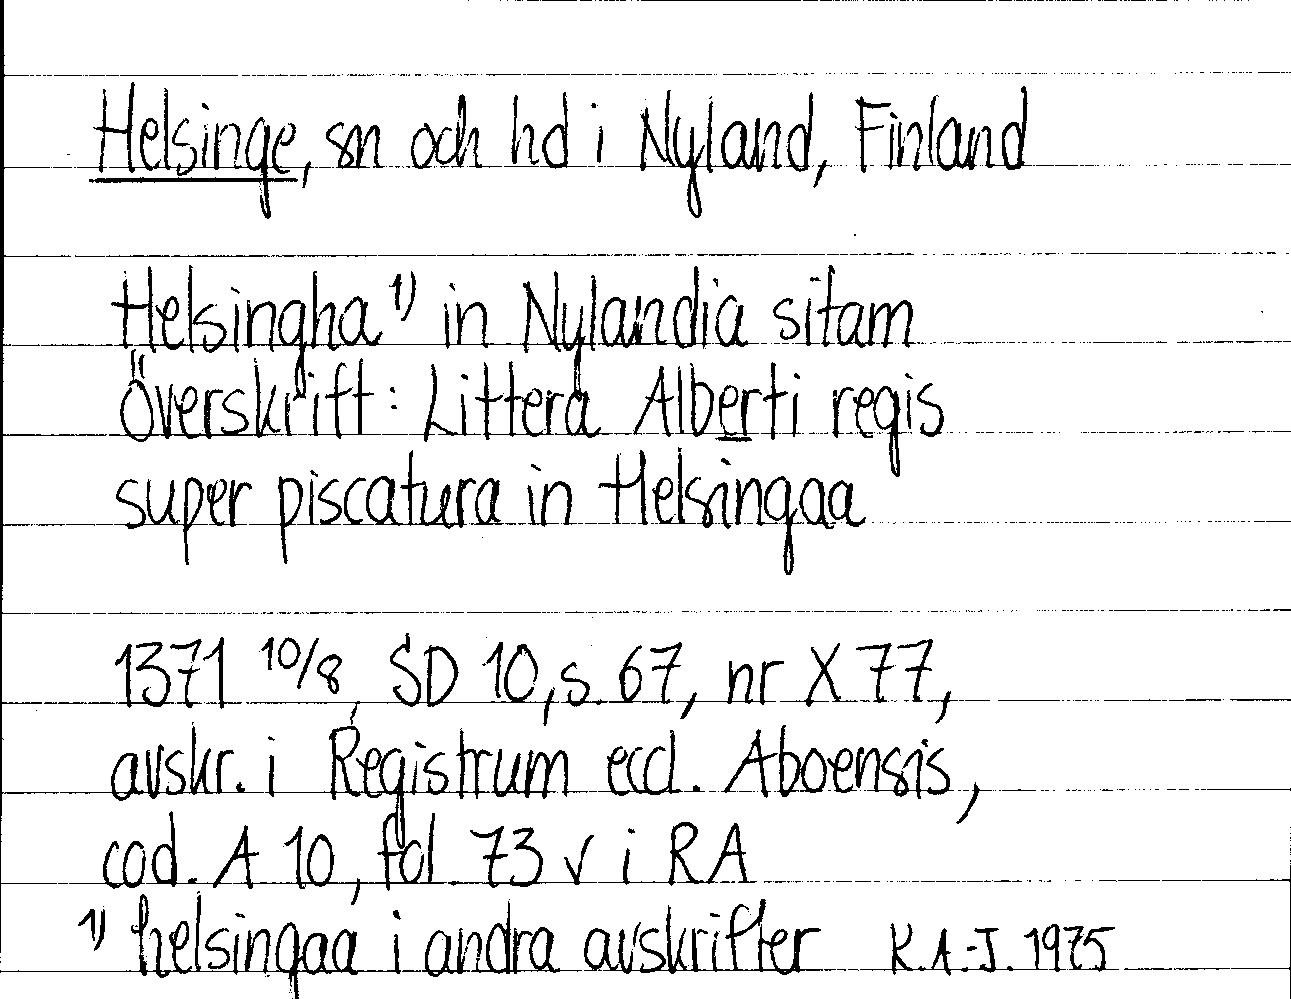 Helsinge, sn och hd i Nyland, Finland
Helsingha 1) in Nylandia sitam
Överskrift: Littera Alberti regis
super piscatura in Helsingaa
1371 10/8, SD 10, s. 67, nr X 77,
avskr. i Registrum eccl. Aboensis,
cod. A 10, fol. 73 v i RA
1) helsingaa i andra avskrifter K.A.-J. 1975